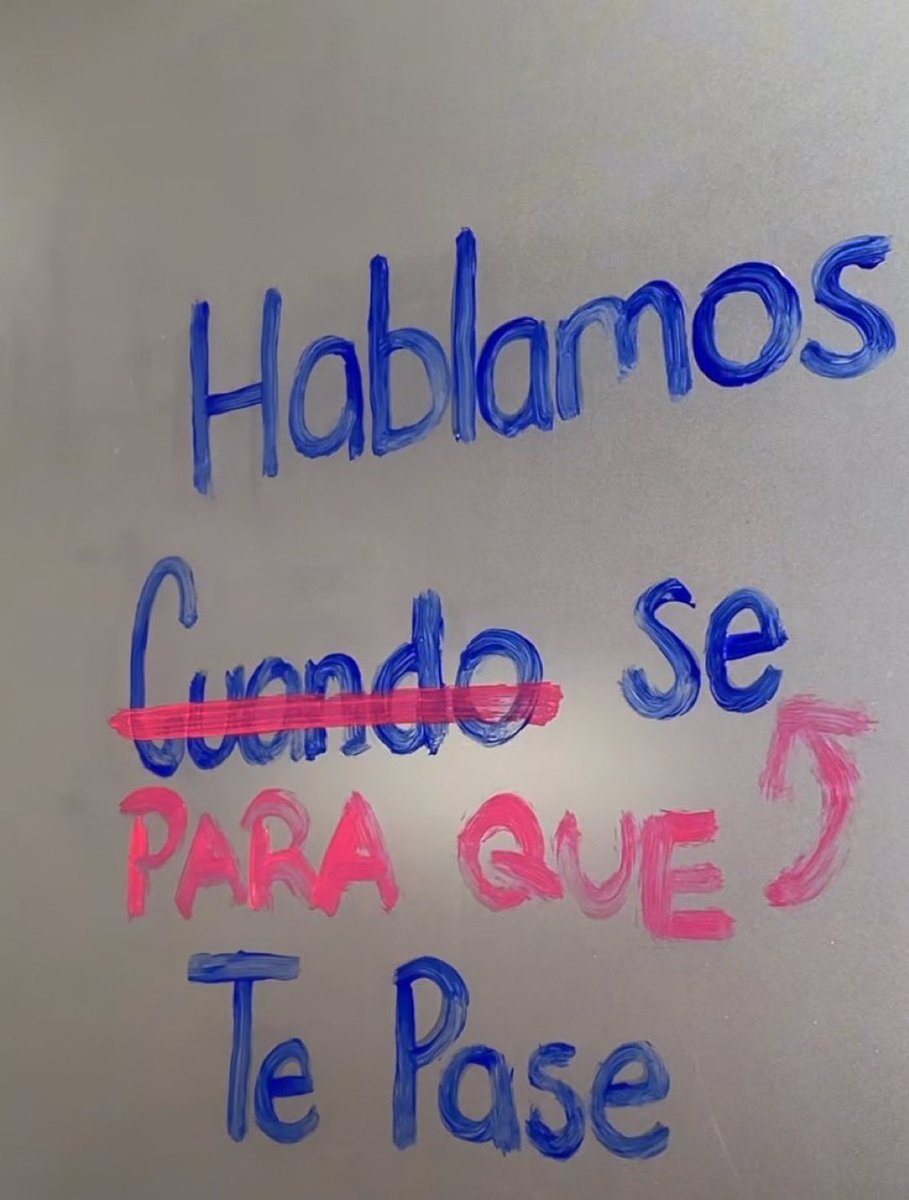 Hablamos
Cuando se
PARA QUE
Te Pase